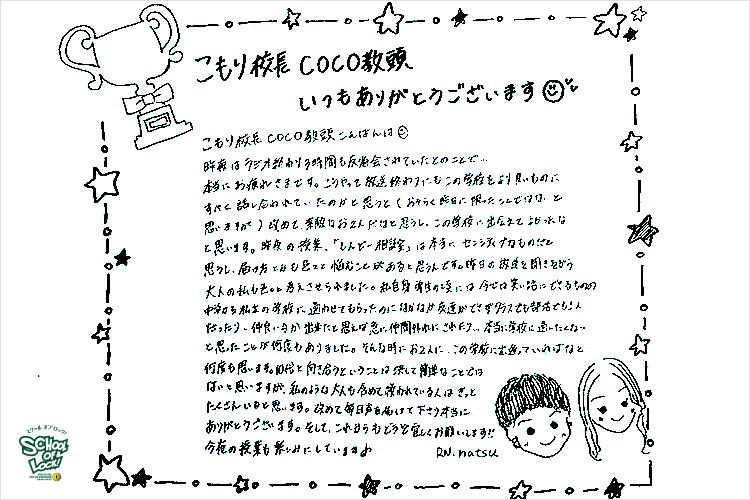 こもり校長 COCO教頭
いつもありがとうございます
こもり校長 COCO教頭 こんばんは
昨夜はラジオ終わり3時間も反省会されていたとのことで…
本当にお疲れさまです。こうやって放送終わりにもこの学校をより良いものに
すべく話し合われていたのかと思うと(おそらく昨日に限ったことではないと
思いますが)改めて、素敵なお2人だなと思うし、この学校に出会えてよかったな
と思います。昨夜の授業、「しんどー相談室」は本当に、センシティブなものだと
思うし、届け方とかも色々と悩むことがあると思うんです。昨日の放送を聞きながら
大人の私も色々と考えさせられました。私自身 学生の頃には 今では笑い話にできるものの
中学から私立の学校に通わせてもらったのになかなか友達ができずクラスでも部活でも1人
だったり、仲良い子が出来たと思えば急に仲間外れにされたり…本当に学校に通いたくない
と思ったことが何度もありました。そんな時にお2人に、この学校に出逢っていればなと
何度も思います。自分と向き合うということは決して簡単なことでは
ないと思いますが、私のような大人も含めて救われている人はきっと
たくさんいると思います。改めて毎日声を届けて下さり本当に
ありがとうございます。そして、これからもどうぞ宜しくお願いします!!
今夜の授業も楽しみにしています♪
RN. natsu
スクール オブ ロック!
SCHOOL OF LOCK!